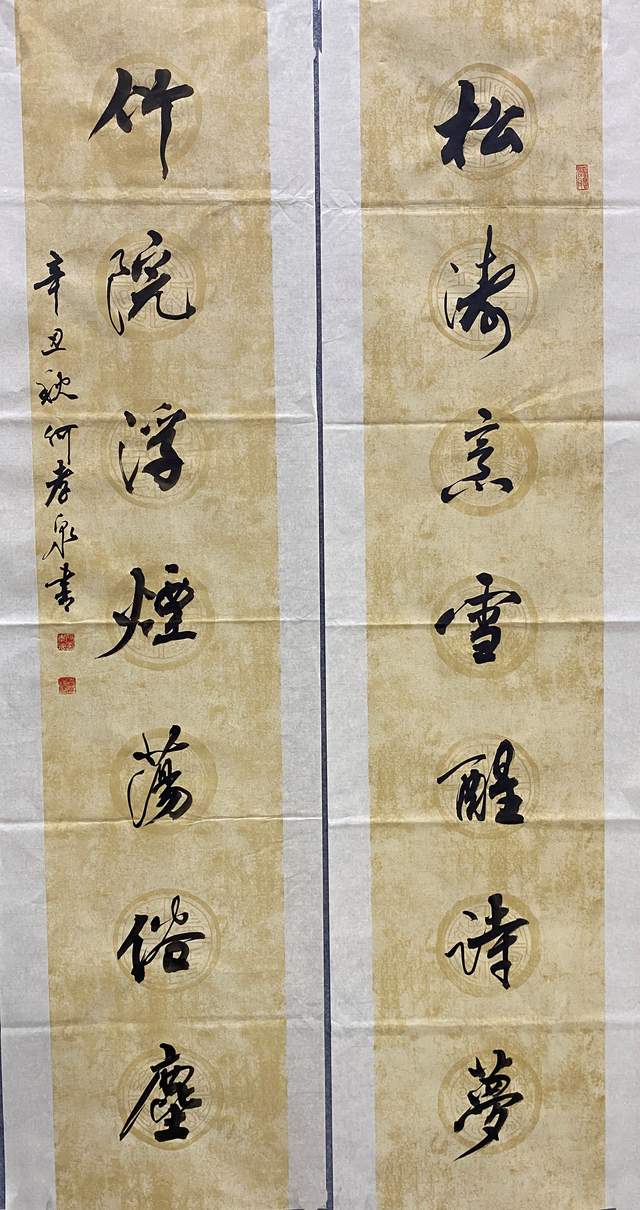 松濤烹雪醒詩夢
竹院浮煙蕩俗塵
辛丑秋何孝泉書